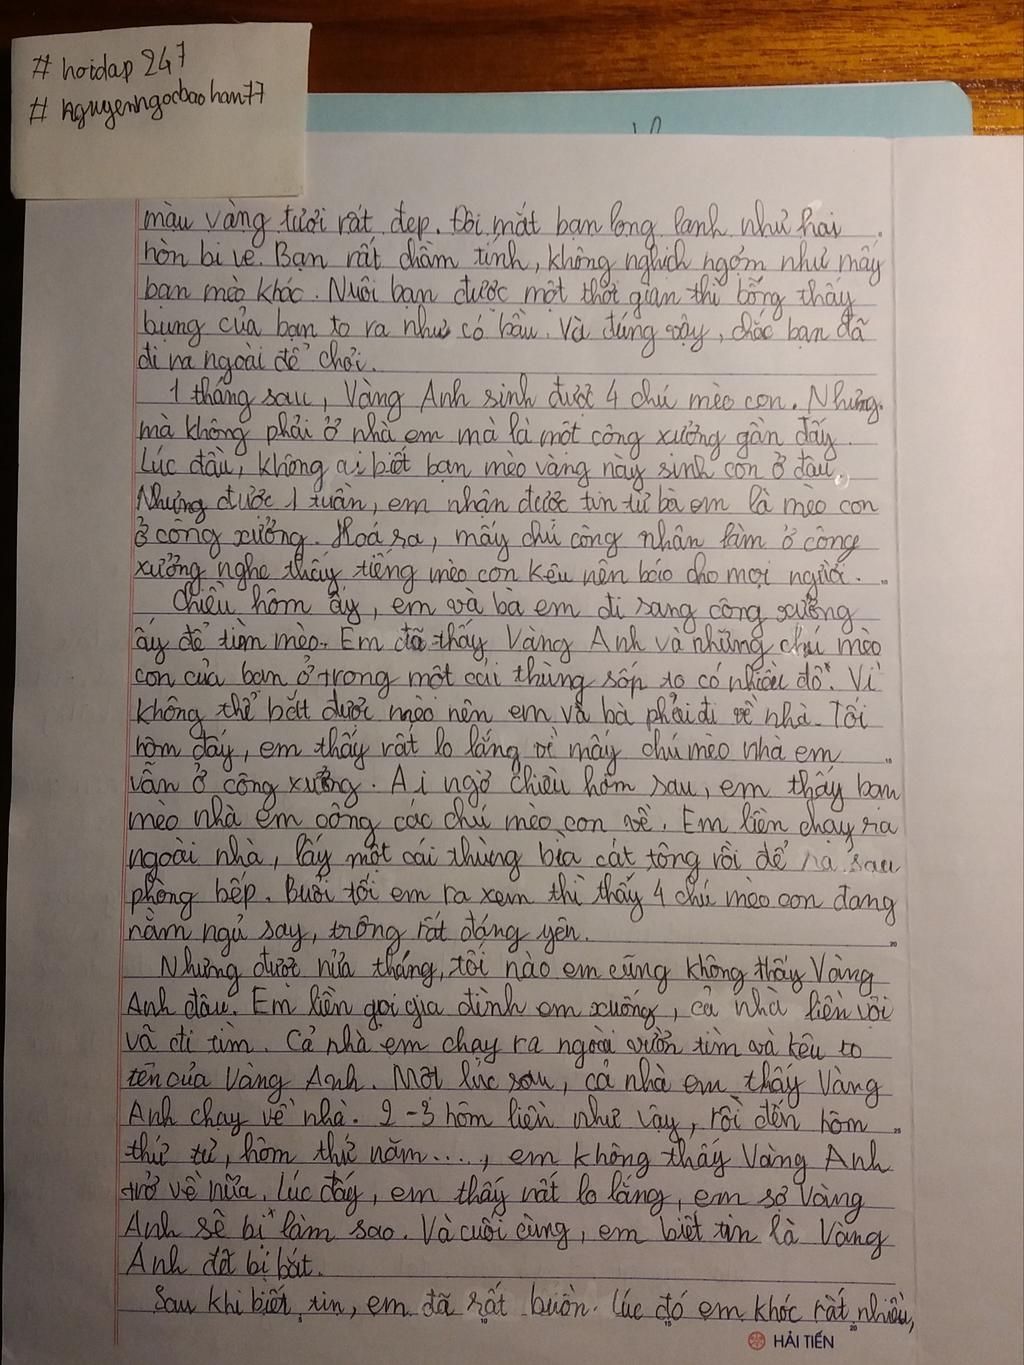 # hoidap 247
# nguyenngocbaohan77
màu vàng tươi rất đẹp. Đôi mắt bạn long lanh như hai
hòn bi ve. Bạn rất chầm tính, không nghịch ngợm như mấy
bạn mèo khác. Nuôi bạn được một thời gian thì bỗng thấy
bụng của bạn to ra như có bầu. Và đúng vậy, chắc bạn đã
đi ra ngoài để chơi.
1 tháng sau, Vàng Anh sinh được 4 chú mèo con. Nhưng
mà không phải ở nhà em mà là một công xưởng gần đấy.
Lúc đầu, không ai biết bạn mèo vàng này sinh con ở đâu.
Nhưng được 1 tuần, em nhận được tin từ bà em là mèo con
ở công xưởng. Hoá ra, mấy chú công nhân làm ở công
xưởng nghe thấy tiếng mèo con kêu nên báo cho mọi người.
Chiều hôm ấy, em và bà em đi sang công xưởng
ấy để tìm mèo. Em đã thấy Vàng Anh và những chú mèo
con của bạn ở trong một cái thùng sốp to có nhiều đồ. Vì
không thể bắt được mèo nên em và bà phải đi về nhà. Tối
hôm đấy, em thấy rất lo lắng vì mấy chú mèo nhà em
vẫn ở công xưởng. Ai ngờ chiều hôm sau, em thấy bạn
mèo nhà em công các chú mèo con về. Em liền chạy ra
ngoài nhà, lấy một cái thùng bìa cát tông rồi để ra sau
phòng bếp. Buổi tối em ra xem thì thấy 4 chú mèo con đang
nằm ngủ say, trông rất đáng yên.
Nhưng được nửa tháng, tối nào em cũng không thấy Vàng
Anh đâu. Em liền gọi gia đình em xuống, cả nhà liền vội
vã đi tìm. Cả nhà em chạy ra ngoài vườn tìm và kêu to
tên của Vàng Anh. Một lúc sau, cả nhà em thấy Vàng
Anh chạy về nhà. 2-3 hôm liền như vậy, rồi đến hôm
thứ tư, hôm thứ năm...., em không thấy Vàng Anh
trở về nữa. Lúc đấy, em thấy rất lo lắng, em sợ Vàng
Anh sẽ bị làm sao. Và cuối cùng, em biết tin là Vàng
Anh đã bị bắt.
Sau khi biết tin, em đã rất buồn. Lúc đó em khóc rất nhiều,
HẢI TIẾN